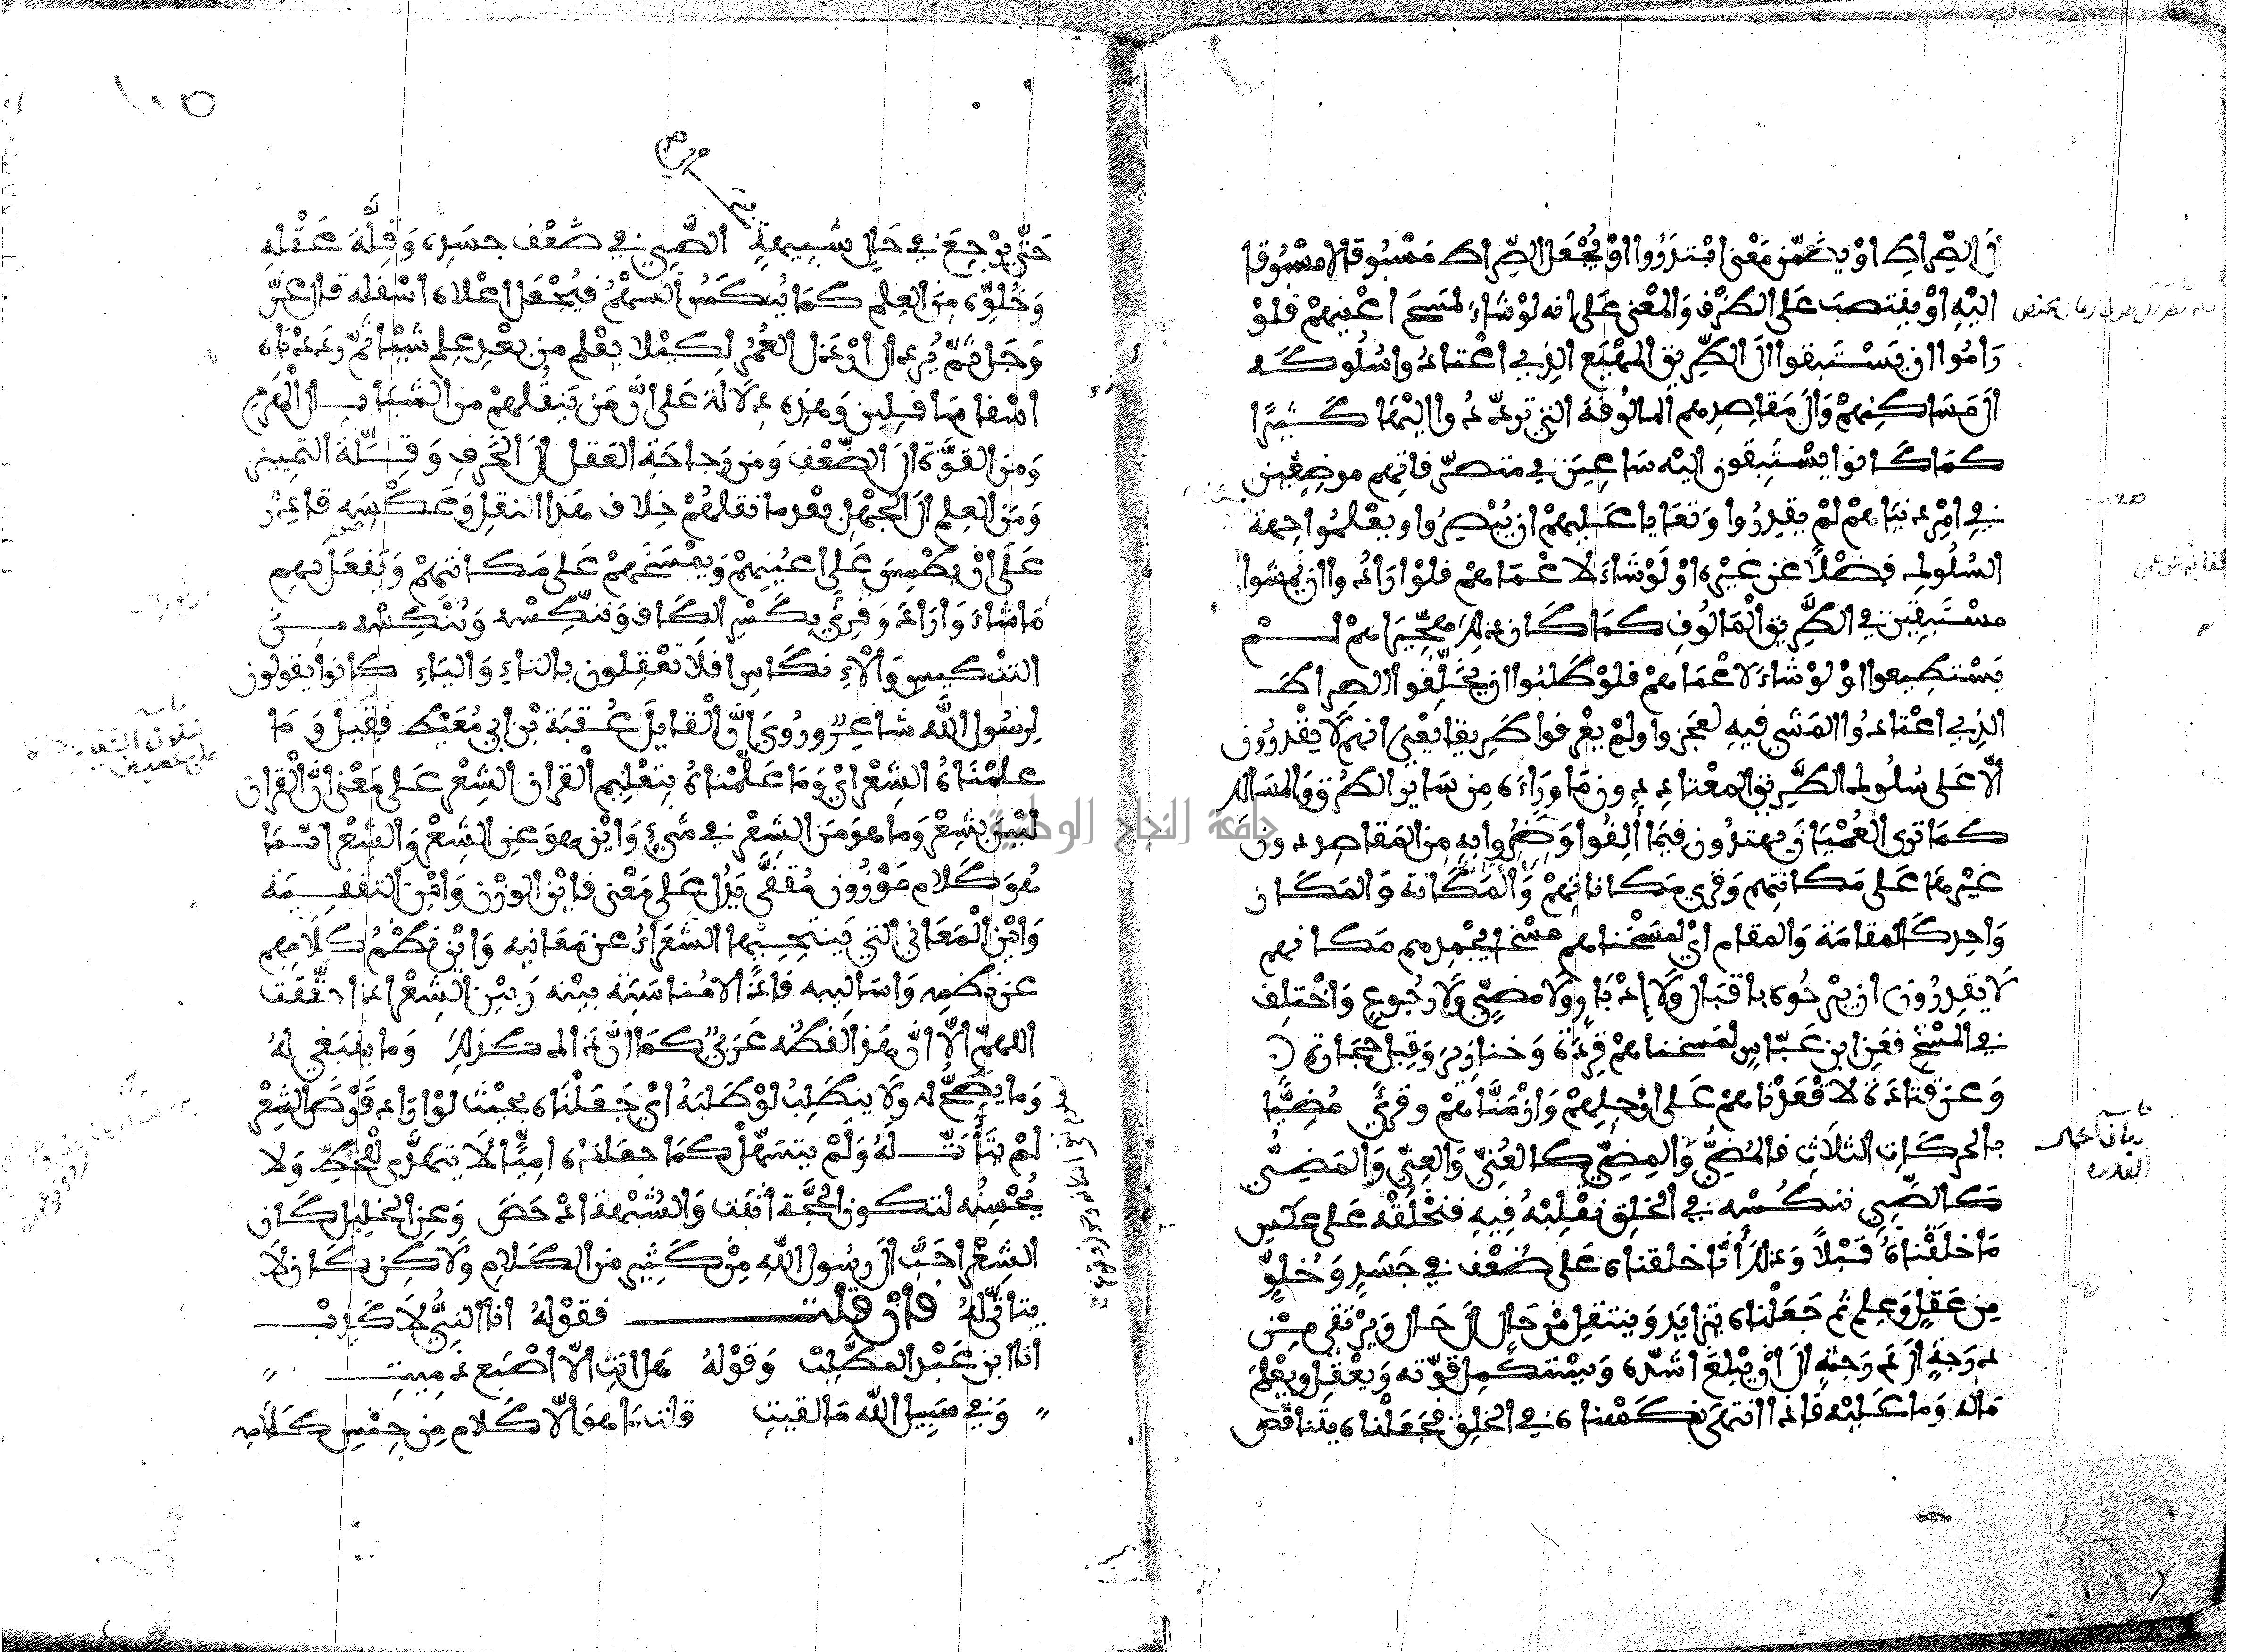 الى الصراط او يضمن معنى ابتدروا او يجعل الصراط مسبوقا لا مسبوقا
اليه او ينتصب على الظرف والمعنى على انه لو شاء لمسح اعينهم فلو
راموا ان يستبقوا الى الطريق المهيع الذي اعتادوا سلوكه
الى مساكنهم والى مقاصدهم المالوفة التي ترددوا اليها كثيرا
كما كانوا يستبقون اليه ساعين في متصرفاتهم موضعين
في امر دنياهم لم يقدروا وتعايا عليهم ان يبصروا ويعلموا جهة
السلوك فضلا عن غيره او لو شاء لاعماهم فلو ارادوا ان يمشوا
مستبقين في الطريق المالوف كما كان ذلك هجيراهم لم
يستطيعوا او لو شاء لاعماهم فلو طلبوا ان يخلفوا الصراط
الذي اعتادوا المشي فيه لعجزوا ولم يعرفوا طريقا يعني انهم لا يقدرون
الا على سلوك الطريق المعتاد دون ما وراءه من ساير الطرق والمسالك
كما ترى العميان يهتدون فيما الفوا وضروا به من المقاصد دون
غيرها على مكانتهم وقرئ مكاناتهم والمكانة والمكان
واحد كالمقامة والمقام اي لمسخناهم مسخا يجمدهم مكانهم
لا يقدرون ان يبرحوه باقبال ولا ادبار ولا مضي ولا رجوع واختلف
في المسخ فعن ابن عباس لمسخناهم قردة وخنازير وقيل حجارة
وعن قتادة لاقعدناهم على ارجلهم وازمناهم وقرئ مضيا
بالحركات الثلاث فالمضي والمضي كالعتي والعتي والمضي
كالصبي ننكسه في الخلق نقلبه فيه فنخلقه على عكس
ما خلقناه قبلا وذلك انا خلقناه على ضعف في جسد وخلو
من عقل وعلم ثم جعلناه يتزايد وينتقل من حال الى حال ويرتقي من
درجة الى درجة الى ان يبلغ اشده ويستكمل قوته ويعقل ويعلم
ماله وما عليه فاذا انتهى نكسناه في الخلق فجعلناه يتناقص
حتى يرجع في حال شبيهة الصبي في ضعف جسده وقلة عقله
وخلوه من العلم كما ينكس السهم فيجعل اعلاه اسفله قال عز
وجل ثم يرد الى ارذل العمر لكيلا يعلم من بعد علم شيئا ثم رددناه
اسفل سافلين وهذه دلالة على ان من ينقلهم من الشباب الى الهرم
ومن القوة الى الضعف ومن رجاحة العقل الى الخرف وقلة التمييز
ومن العلم الى الجهل بعد ما نقلهم خلاف هذا النقل وعكسه قادر
على ان يطمس على اعينهم ويمسخهم على مكانتهم ويفعل بهم
ما شاء واراد وقرئ بكسر الكاف وننكسه وننكسه من
التنكيس والانكاس افلا تعقلون بالتاء والياء كانوا يقولون
لرسول الله شاعر وروي ان القايل عقبة بن ابي معيط فقيل وما
علمناه الشعر اي وما علمناه بتعليم القران الشعر على معنى ان القران
ليس بشعر وما هو من الشعر في شيء واين هو عن الشعر والشعر انما
هو كلام موزون مقفى يدل على معنى فاين الوزن واين التقفية
واين المعاني التي ينتحيها الشعراء عن معانيه واين نظم كلامهم
عن نظمه واساليبه فاذا لا مناسبة بينه وبين الشعر اذا حققت
اللهم الا ان هذا لفظه عربي كما ان ذاك كذلك وما ينبغي له
وما يصح له ولا ينطلب لو طلبه اي جعلناه بحيث لو اراد قرض الشعر
لم يتات له ولم يتسهل كما جعلناه اميا لا يتهدى للخط ولا
يحسنه لتكون الحجة اثبت والشبهة ادحض وعن الخليل كان
الشعر احب الى رسول الله من كثير من الكلام ولاكن كان لا
يتاتى له فان قلت فقوله انا النبي لا كذب
انا ابن عبد المطلب وقوله هل انت الا اصبع دميت
وفي سبيل الله ما لقيت قلت ما هو الا كلام من جنس كلامه
جامعة النجاح الوطنية